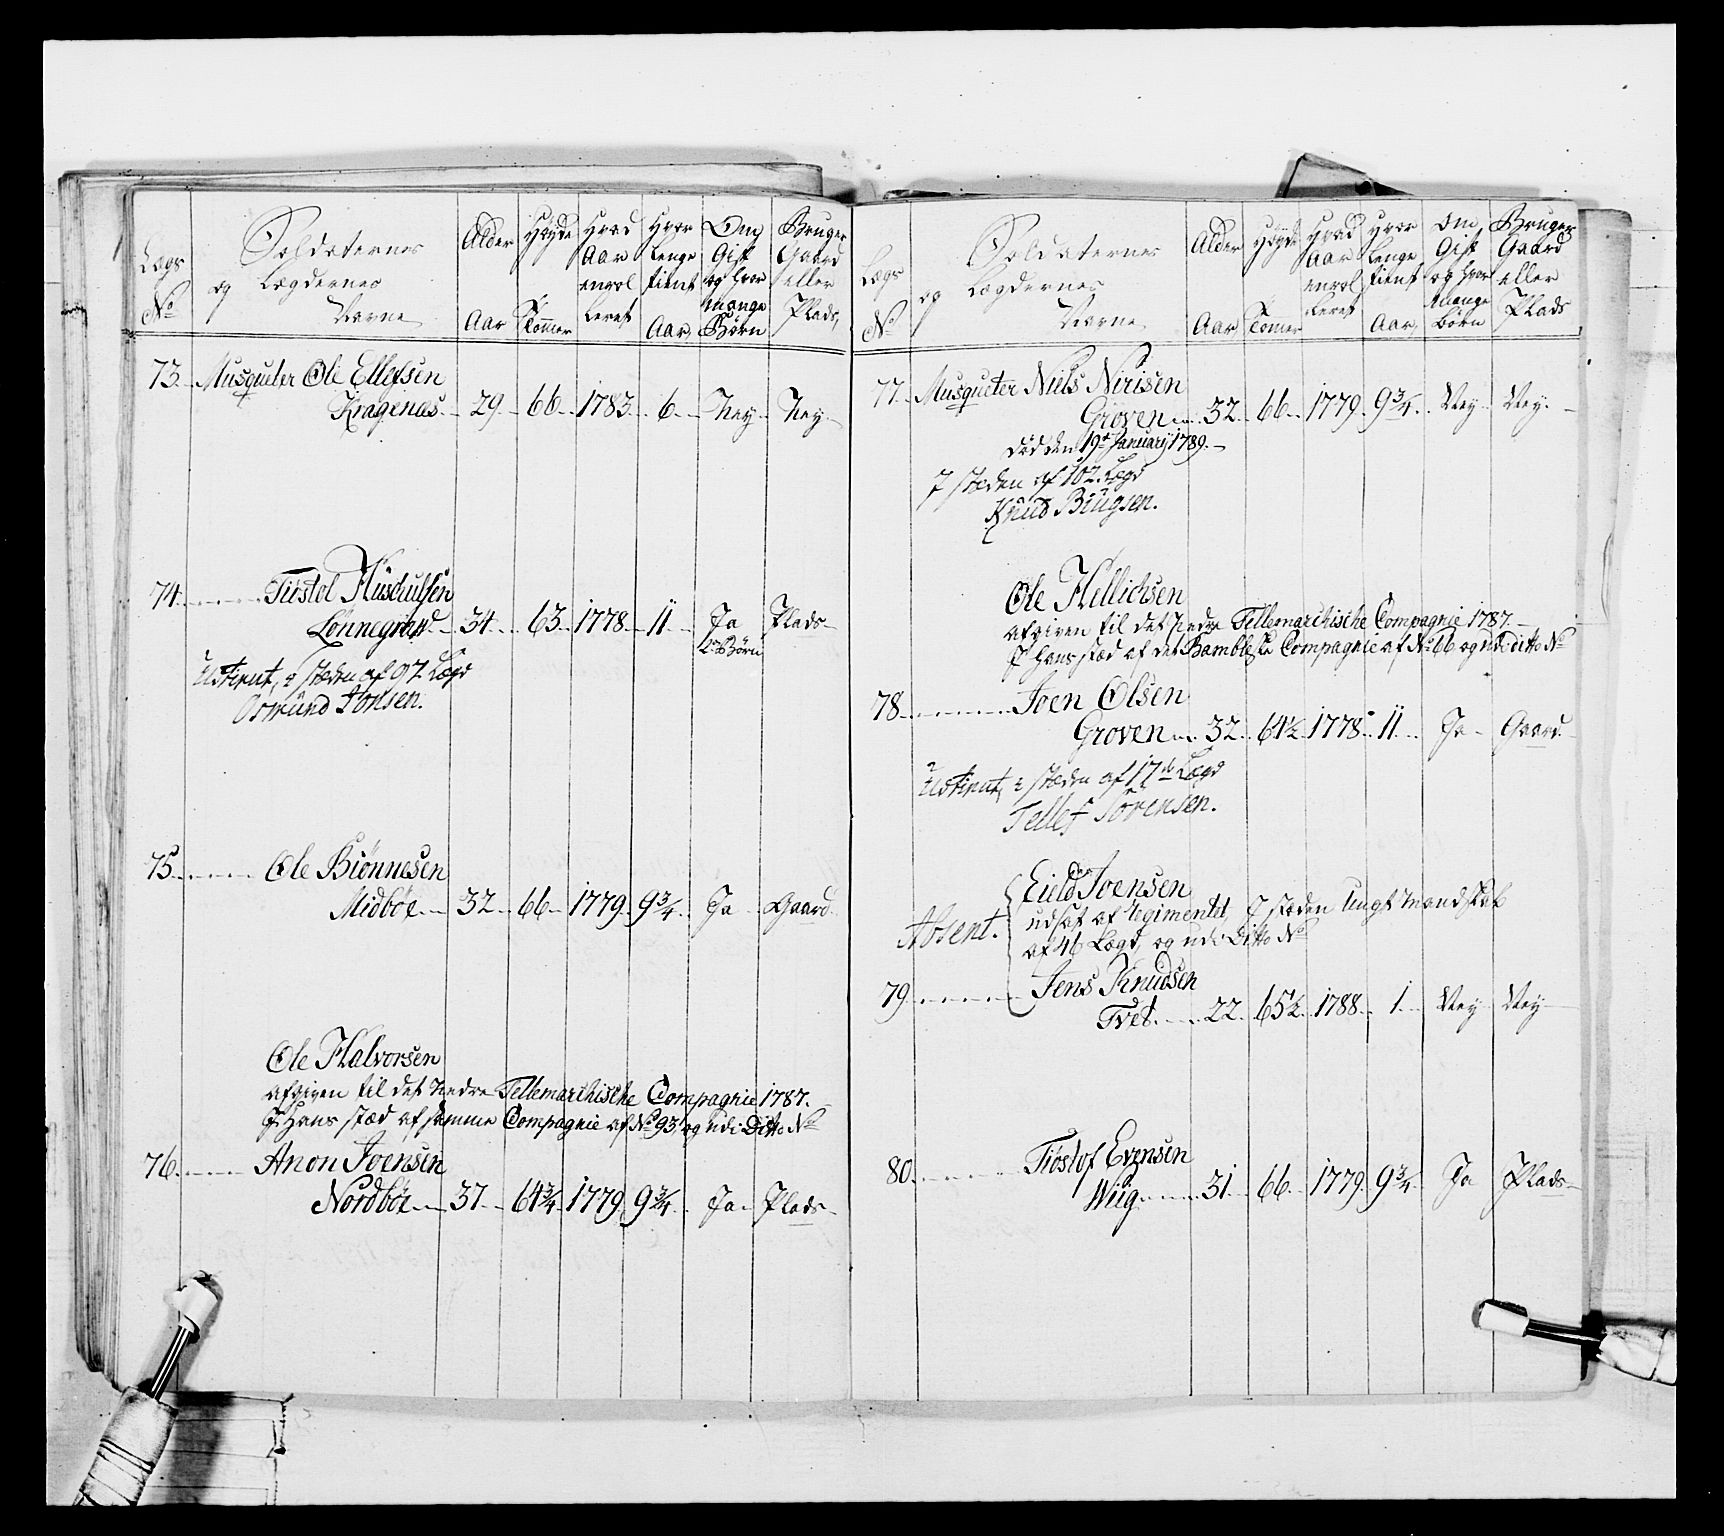 Lægs No
Soldaternes og Lægdernes Navne
Alder Aar
Høyde Tommer
Hvad Aar enrolleret
Hvor lenge tient Aar
Om Gift og hvor mange Børn
Bruger Gaard eller Plads
73. Musqueter Ole Ellefsen
Kragenæs 29 66 1783 6 Ney Ney
74. Tiostol
Lønnegrav 34 63 1778 11 Ja Plads
2 Børn
Udtient, i stæden af 97 Lægd
Osmund Jonsen.
75. Ole Biönnesen
Midböe 32 66 1779 9 3/4 Ja Gaard
Ole Halvorsen
afgiven til det Nedre Tellemarchische Compagnie 1787.
J Hans stæd af samme Compagnie af No 93 og udi Ditto No
76. Anon Joensen
Nordböe 37 64 3/4 1779 9 3/4 Ja Plads
Lægs No
Soldaternes og Lægdernes Navne
Alder Aar
Høyde Tommer
Hvad Aar enrolleret
Hvor lenge tient Aar
Om Gift og hvor mange Børn
Bruger Gaard eller Plads
77. Musqueter Niels Nirisen
Groven 32 66 1779 9 3/4 Ney Ney
død den 19de January 1789.
J stæden af 102 Lægd
Knud Biugsen.
Ole Hellichsen
afgiven til det Nedre Tellemarchische Compagnie 1787.
J hans stæd af det Bambleske Compagnie af No 66 og udi ditto No
78. Joen Olsen
Groven 32 64 1/2 1778 11 Ja Gaard
Udtient, i stæden af 17de Lægd
Tellef Sörensen.
Absent.
Eield Joensen
udsat af Regimentet, J stæden Ungt Mandskab
af 46 Lægd, og udi Ditto No
79. Jens Knudsen
Tvet 22 65 1/2 1788 1 Ney Ney
80. Tiostof Evensen
Wiig 31 66 1779 9 3/4 Ja Plads